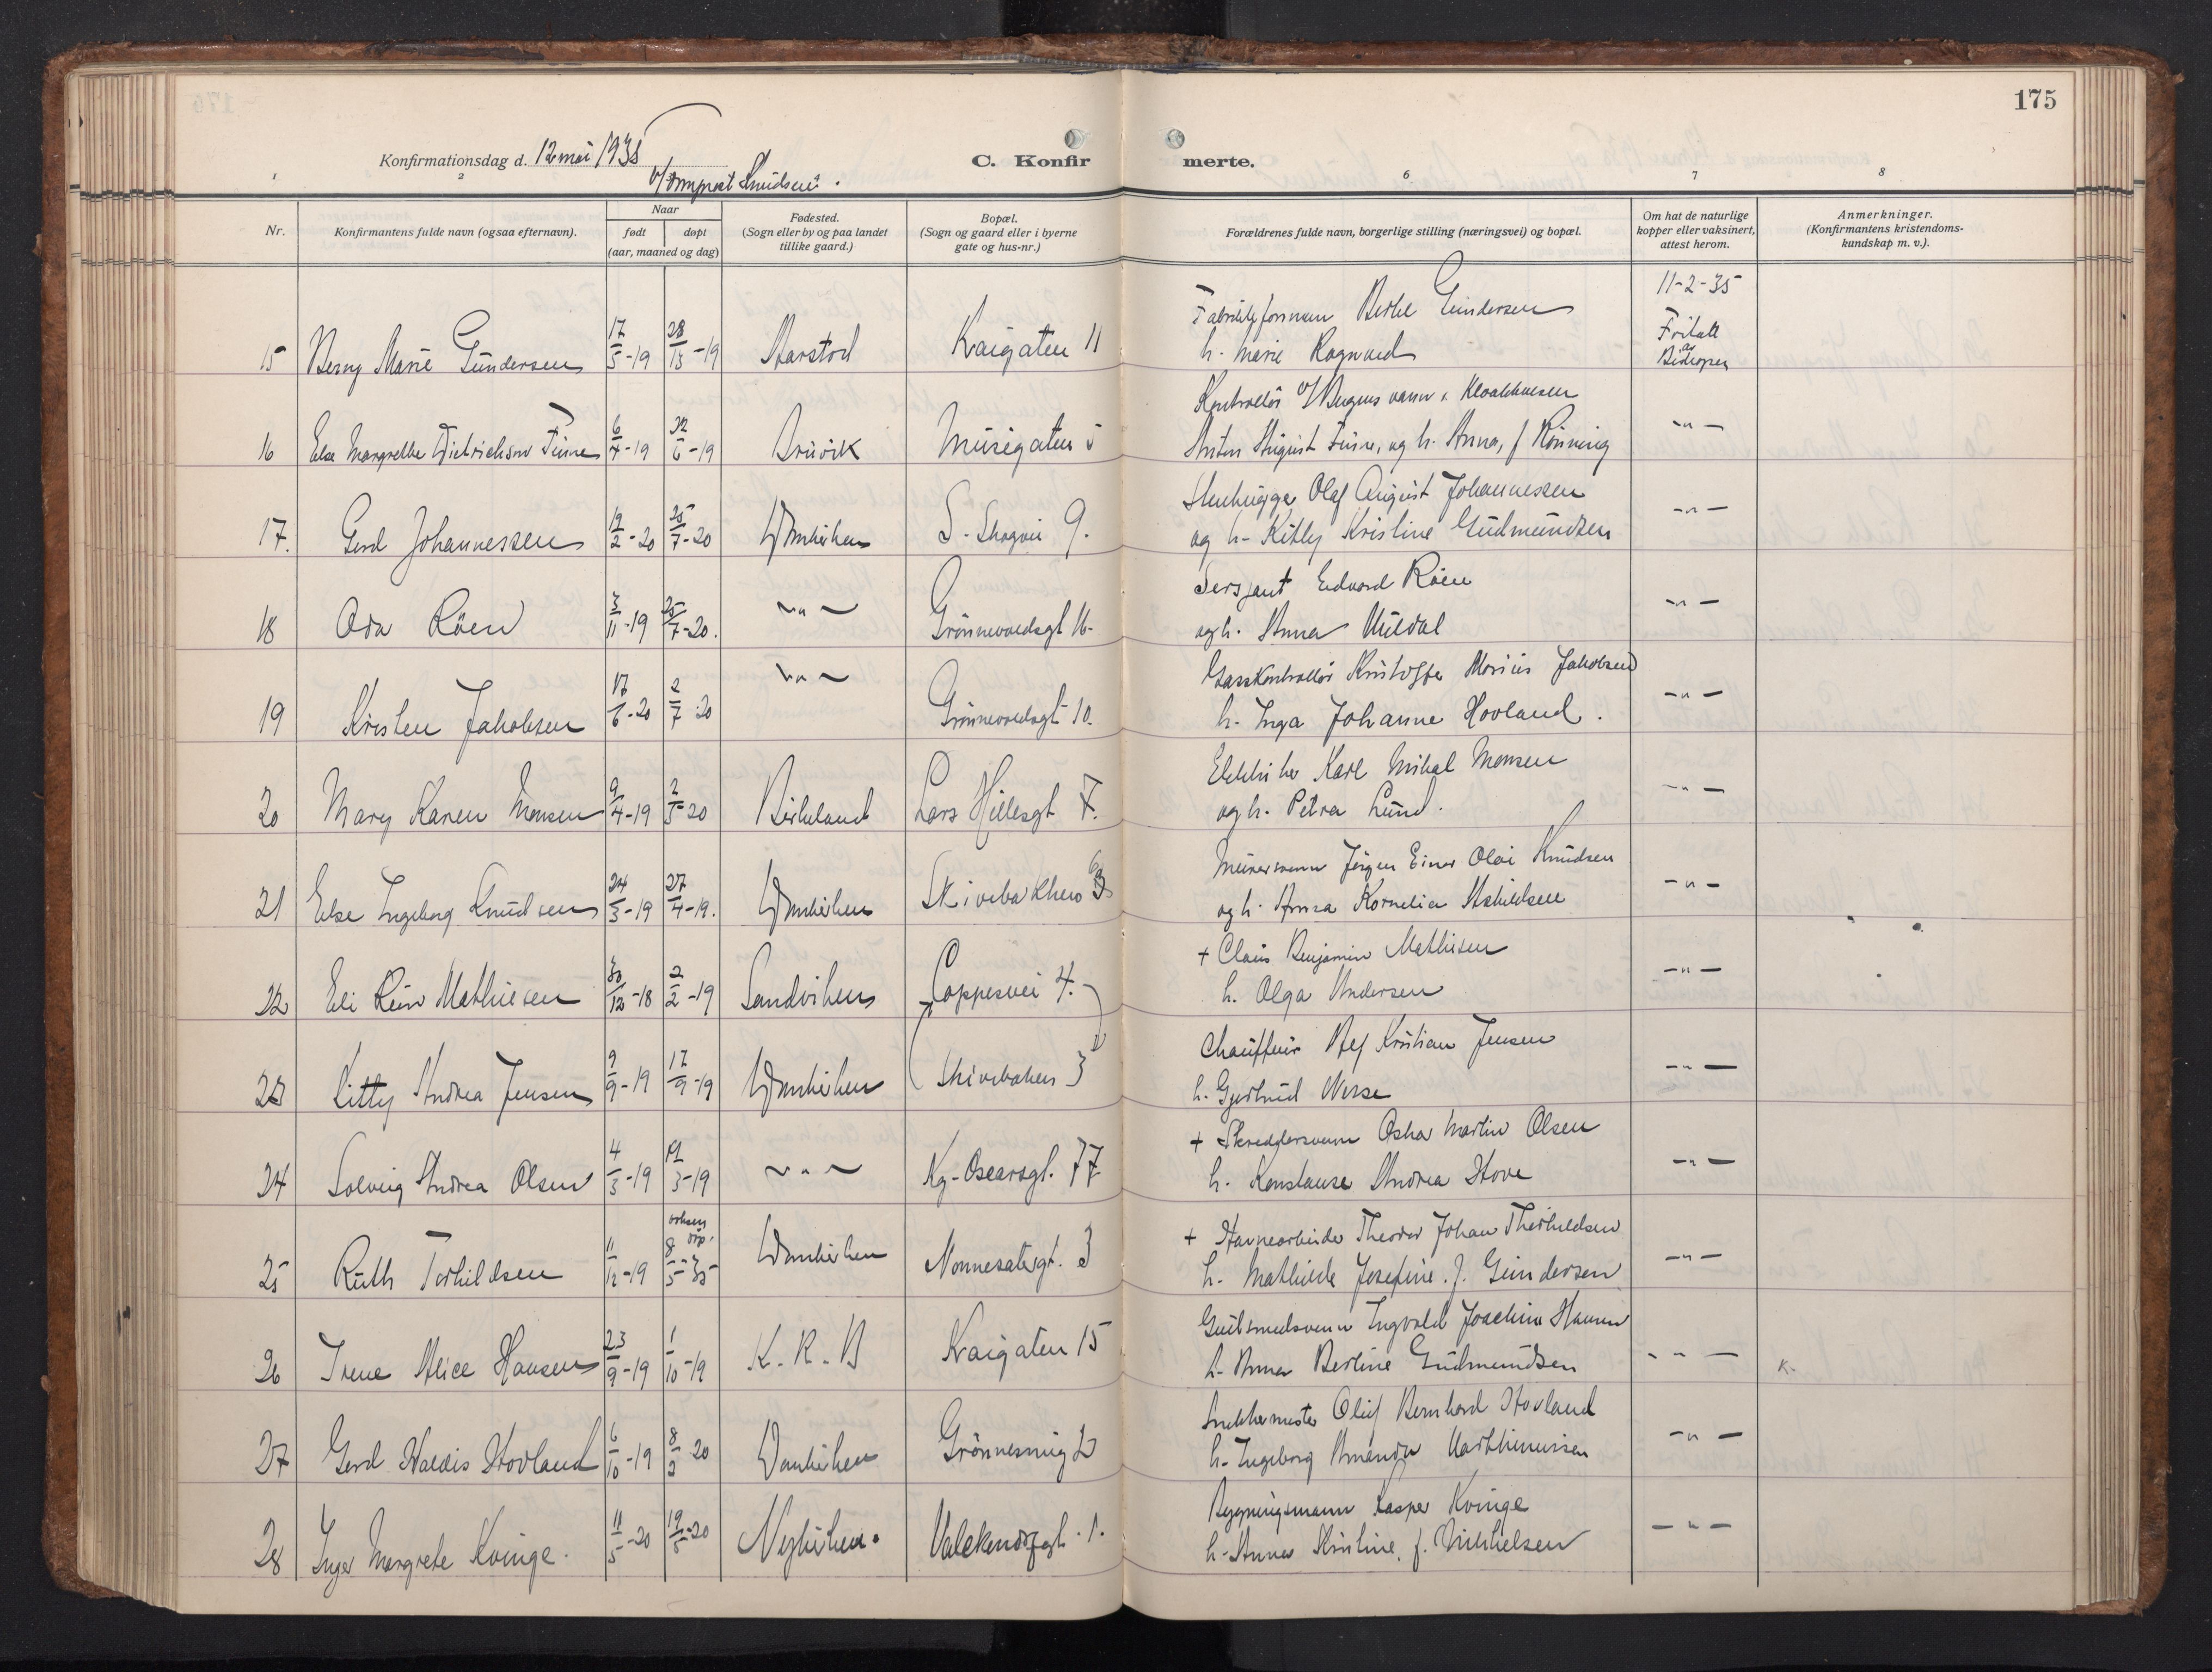 175
Konfirmationsdag d. 12 mai 1935
C. Konfirmerte.
v/ Knudsen.
1 2 6 7 8
Nr. Konfirmantens fulde navn (ogsaa efternavn). Naar født døpt (aar, maaned og dag) Fødested. (Sogn eller by og paa landet tillike gaard.) Bopæl. (Sogn og gaard eller i byerne gate og hus-nr.) Forældrenes fulde navn, borgerlige stilling (næringsvei) og bopæl. Om hat de naturlige kopper eller vaksinert, attest herom. Anmerkninger. (Konfirmantens kristendoms-kundskap m. v.).
11-2-35
Gundersen
15 Berny Marie Gundersen 17/5-19 Aarstad Kaigaten 11 h. Marie Ragnvard Fritatt av Bidropen
Kontrollør v/ Bergens vann
16 Else Margrethe Dietrichson Tuine 6/4-19 22/6-19 Bruvik Musegaten 5 Anton August Tuine, og h. Anna, f Rönning -"-
Stenhugger Olaf August Johannessen
17. Gerd Johannessen 19/2-20 25/7-20 Domkirken S. Skogvei 9. og h. Kitty Kristine Gudmundsen -"-
Sersjant Edvard Röen
18 Oda Röen 3/11-19 25/7-20. -"- Grönnevoldsgt 16. og h. Anna Uüldal -"-
Gasskontrollör Kristoffer Marius Jakobsen
19 Kirsten Jakobsen 17/6-20 2/7-20 -"- Grönnevoldsgt 10. h. Inga Johanne Hovland. -"-
Karl Mikal Monsen
20 Mary Karen Monsen 9/4-19 2/5-20 Birkeland Lars Hillesgt 7. og h. Petra Lund. -"-
Murersvenn Jörgen Einar Olai Knudsen
21 Else Ingeborg Knudsen 24/3-19 27/4-19. Domkirken Skivebakken og h. Anna Kornelia Askildsen -"-
+ Claus Benjamin Mathisen
22 Eli Rein Mathiesen 30/12-18 2/2-19 Sandviken Coppesvei 4. h. Olga Andersen -"-
Chauffeur Alf Kristian Jensen
23 Kitty Andrea Jensen 9/9-19 17/9-19 Domkirken Skivebaken 3 h. Gjertrud Nesse -"-
+ Skreddersvenn Oskar Martin Olsen
24 Solveig Andrea Olsen 4/3-19 3-19 -"- Kg-Oscarsgt. 77 h. Konstanse Andrea Hove -"-
voksen döp.
+ Havnearbeider Theodor Johan Thorkildsen
25 Ruth Torkildsen 11/12-19 8/5-35 Domkirken Nonnesatergt. 3 h. Mathilde Josefine. f. Gundersen -"-
Gullsmedsvenn Ingvald Joachim Hansen
26 Irene Alice Hansen 23/9-19 1/10-19 K. K. B Kaigaten 15 h. Anna Berline Gudmundsen -"- K.
Snekkermester Oluf Bernhard Hovland
27 Gerd Haldis Hovland 6/10-19 8/2 20 Domkirken Grönnesmug 2 h. Ingeborg Amanda Marthinussen -"-
Bygningsmann Kasper Kvinge
28 Inger Margrete Kvinge. 11/5-20 19/5-20 Nykirken. Valckendorfsgt. 1. h. Anna Kristine, f. Mikkelsen -"-